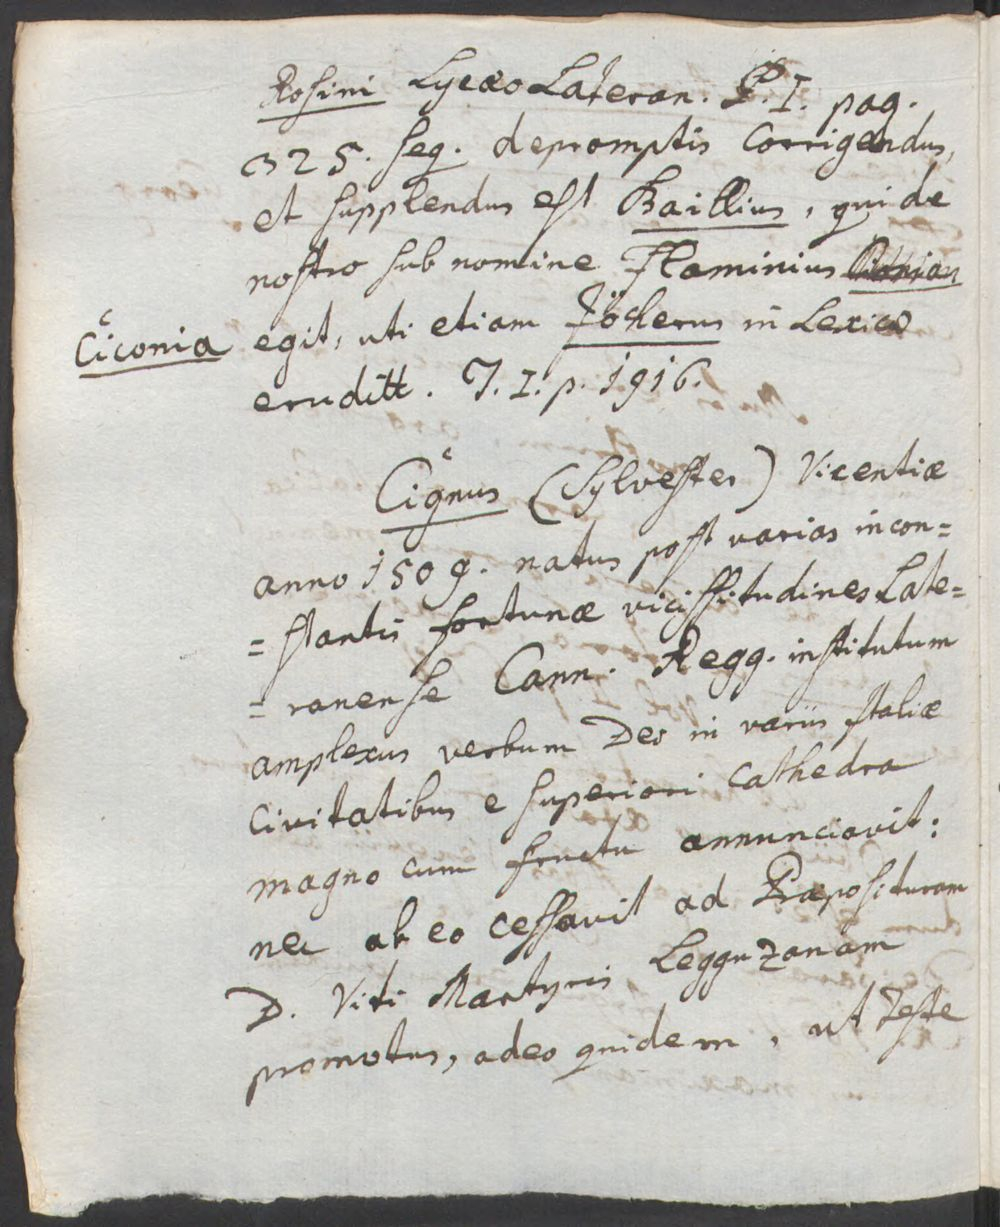 Rosini Lycæo Lateran. P. I. pag.
325. seq. depromptis corrigendus,
et supplendus est Baillius, qui de
nostro sub nomine Flaminius
Ciconia
egit, uti etiam Jöcherus in Lexico
eruditt. T. I. p. 1916.
Cignus (Sylvester) Vicentiæ
anno 1509. natus post varias incon=
=stantis fortunæ vicissitudines Late=
=ranense Cann. Regg. institutum
amplexus verbum Dei in variis Italiæ
civitatibus e superiori cathedra
magno cum fructu annunciavit:
nec ab eo cessavit ad Præposituram
D. Viti Martyris Legguzanam
promotus, adeo quidem, ut teste